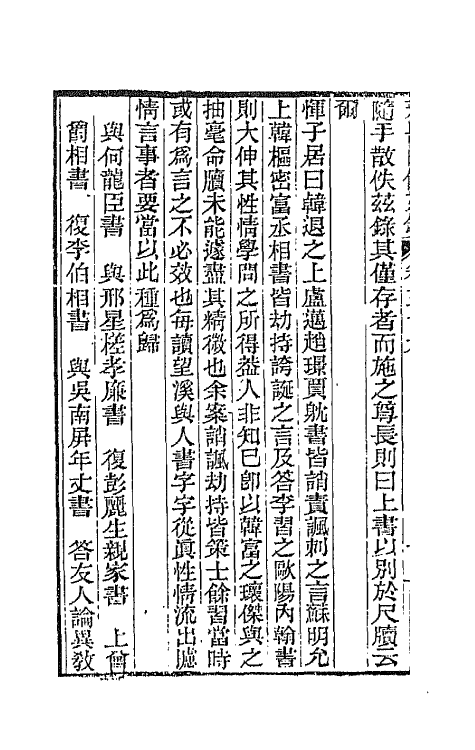 隨手散佚茲錄其僅存者而施之尊長則曰上書以別於尺牘云
爾
惲子居曰韓退之上盧邁趙璟賈躭書皆誚責諷刺之言蘇明允
上韓樞密富丞相書皆劫持誇誕之言及答李習之歐陽內翰書
則大伸其性情學問之所得葢人非知已卽以韓富之瓌傑與之
抽毫命牘未能遽盡其精微也余案誚諷劫持皆策士餘習當時
或有爲言之不必效也每讀望溪與人書字字從眞性情流出攄
情言事者要當以此種爲歸
與何龍臣書　與邢星槎孝廉書　復彭麗生親家書　上曾
節相書　復李伯相書　與吳南屏年丈書　答友人論異敎